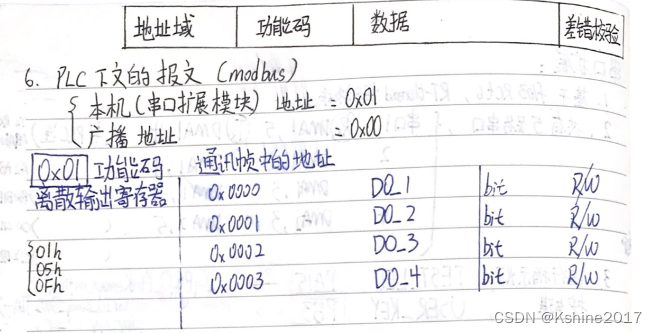 地址域 功能码 数据 差错校验
6. PLC下文的报文(modbus)
本机(串口扩展模块)地址 = 0x01
广播地址 = 0x00
0x01 功能码 通讯帧中的地址
离散输出寄存器 0x0000 DO_1 bit R/W
0x0001 DO_2 bit R/W
01h 0x0002 DO_3 bit R/W
05h
0Fh 0x0003 DO_4 bit R/W
CSDN @Kshine2017